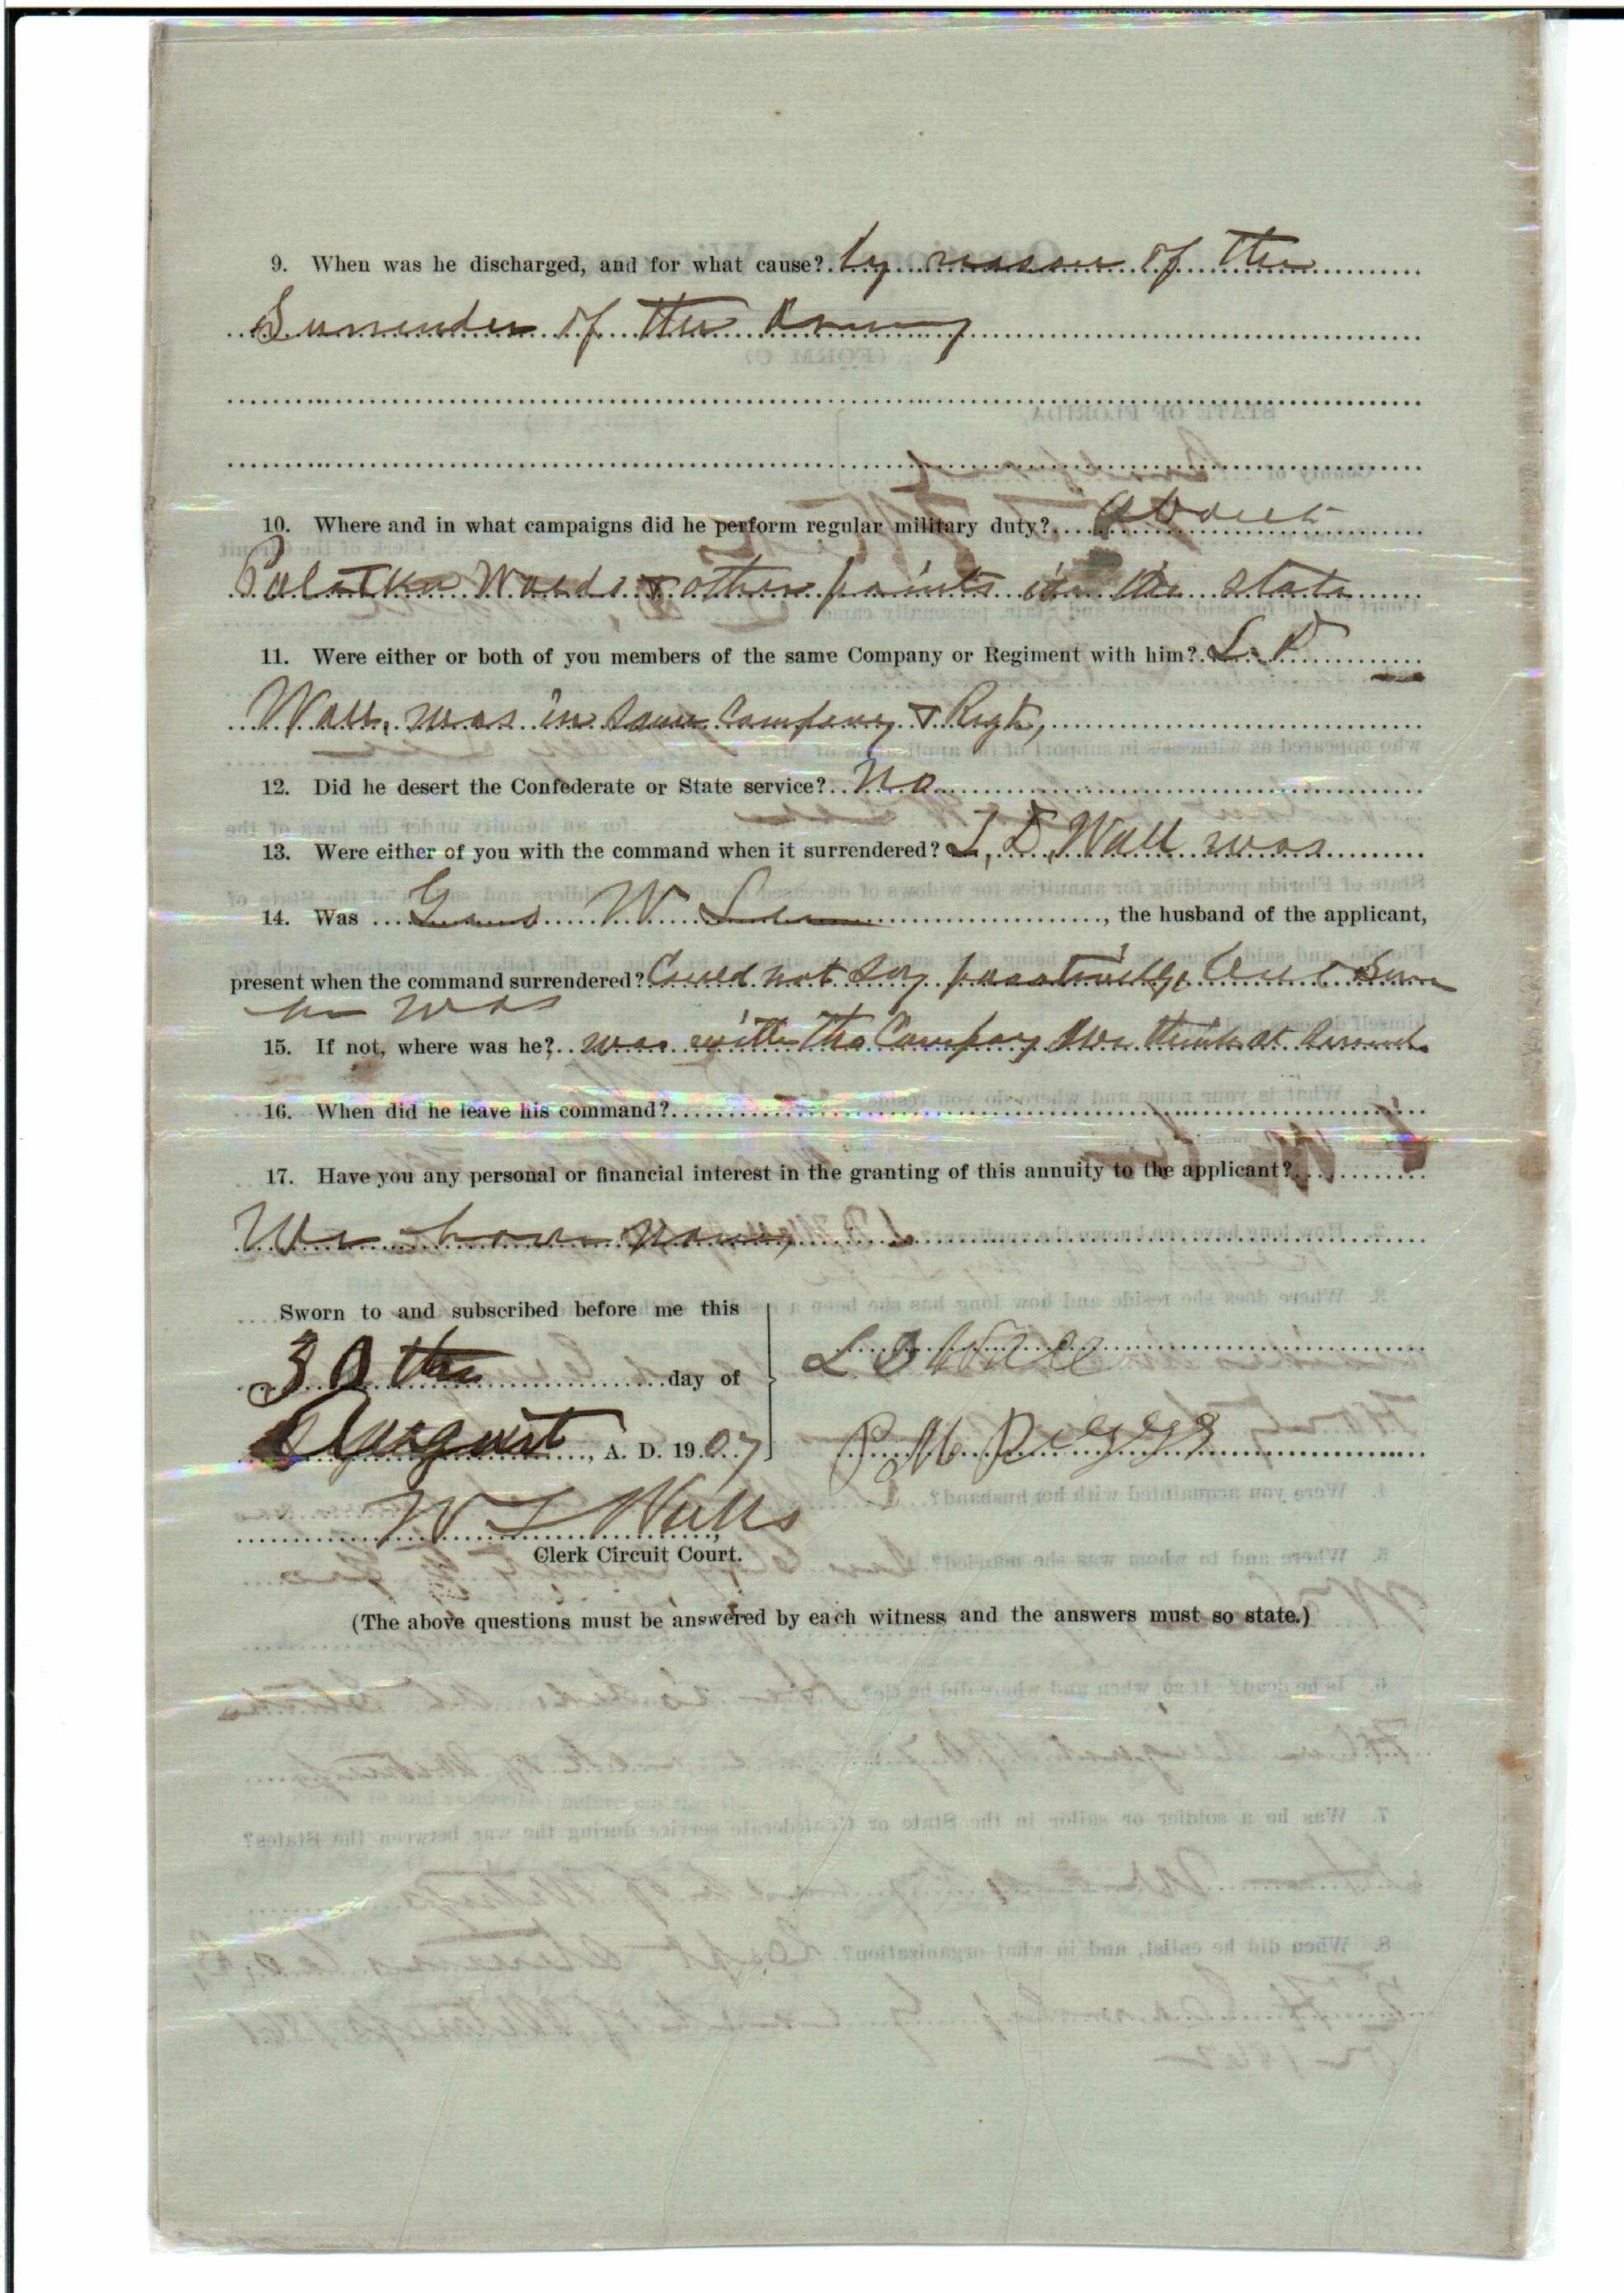 9. When was he discharged, and for what cause? by reason of the
Surrender of the Army
10. Where and in what campaigns did he perform regular military duty? about
Palatka Woods & other points in the state
11. Were either or both of you members of the same Company or Regiment with him? L. D
Wall, was in same Company & Regt,
12. Did he desert the Confederate or State service? No
13. Were either of you with the command when it surrendered? L, D, Wall was
14. Was W , the husband of the applicant,
present when the command surrendered? Could not say but
he was
15. If not, where was he? was with the Company we think at
16. When did he leave his command?
17. Have you any personal or financial interest in the granting of this annuity to the applicant?
We have none,
Sworn to and subscribed before me this
30th day of
August, A. D. 1907
L D Wall
W T Wills
Clerk Circuit Court.
(The above questions must be answered by each witness and the answers must so state.)